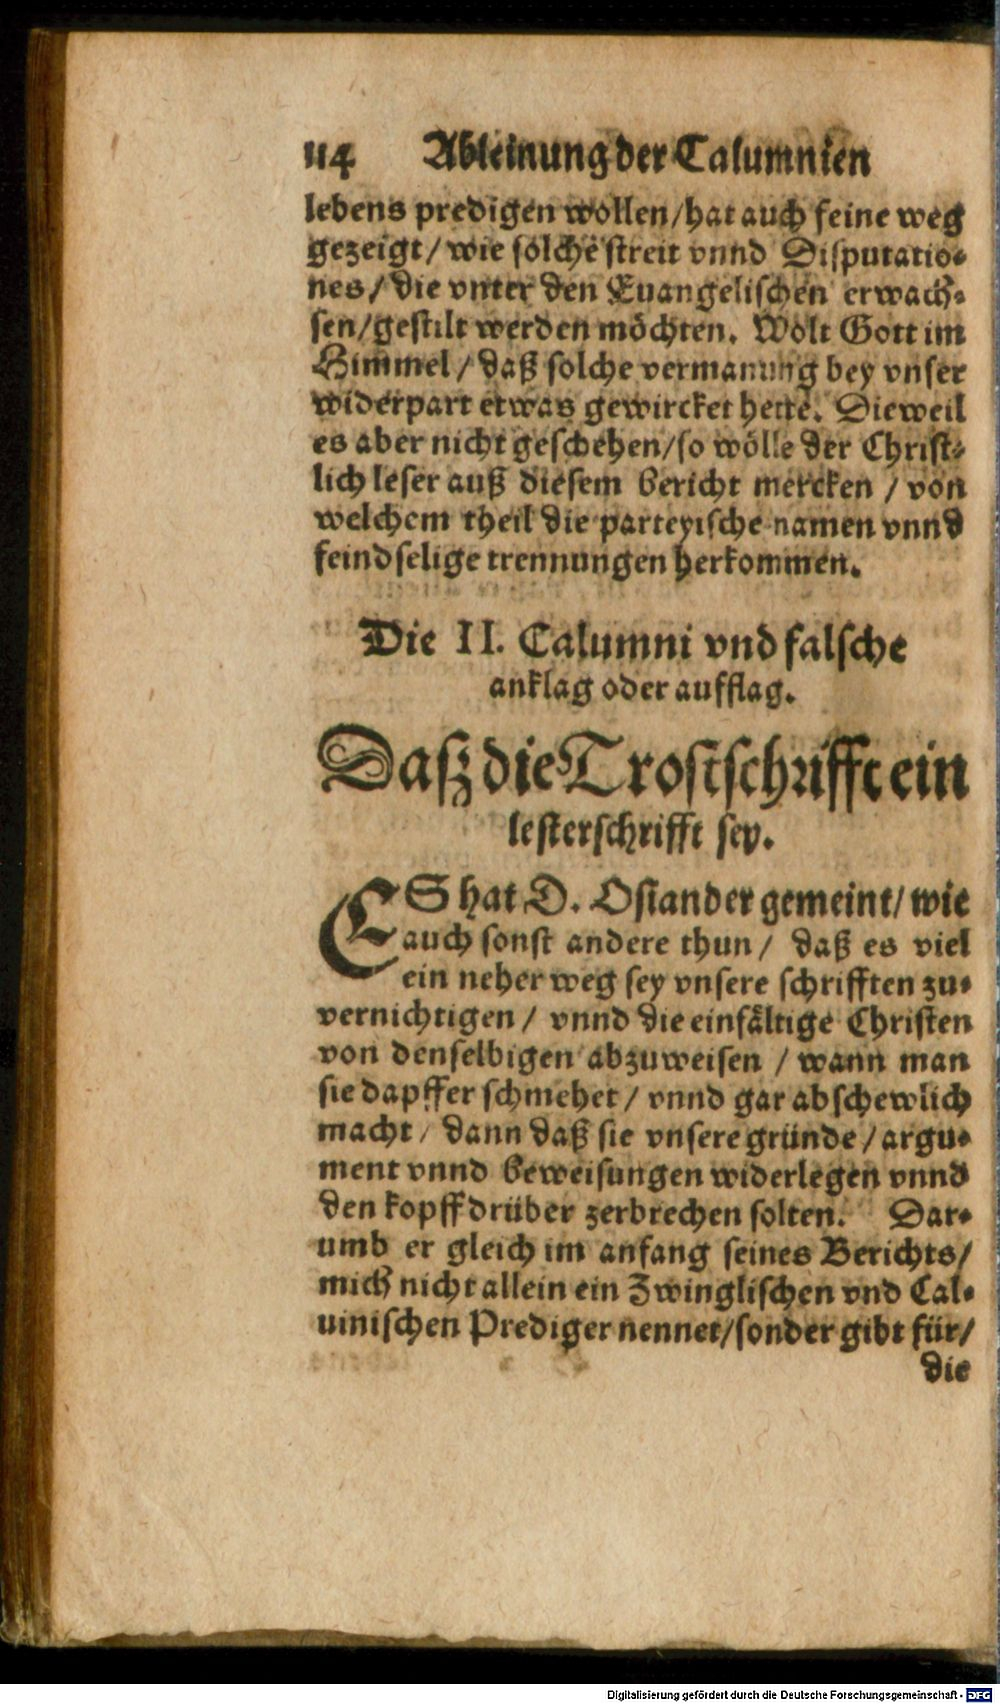 114 Ableinung der Calumnien
lebens predigen wollen/hat auch feine weg
gezeigt/ wie solche streit vnnd Disputatio-
nes/ die vnter den Euangelischen erwach-
sen/gestilt werden möchten. Wolt Gott im
Himmel/ daß solche vermanung bey vnser
widerpart etwas gewircket hette. Dieweil
es aber nicht geschehen/so wölle der Christ-
lich leser auß diesem bericht mercken/ von
welchem theil die parteyische namen vnnd
feindselige trennungen herkommen.
Die II. Calumni vnd falsche
anklag oder aufflag.
Dasz die Trostschrifft ein
lesterschrifft sey.
ES hat D. Osiander gemeint/ wie
auch sonst andere thun/ daß es viel
ein neher weg sey vnsere schrifften zu-
vernichtigen/ vnnd die einfältige Christen
von denselbigen abzuweisen/ wann man
sie dapffer schmehet/ vnnd gar abschewlich
macht/ dann daß sie vnsere gründe/ argu-
ment vnnd beweisungen widerlegen vnnd
den kopff drüber zerbrechen solten. Dar-
umb er gleich im anfang seines Berichts/
mich nicht allein ein Zwinglischen vnd Cal-
uinischen Prediger nennet/sonder gibt für/
die
Digitalisierung gefördert durch die Deutsche Forschungsgemeinschaft - DFG